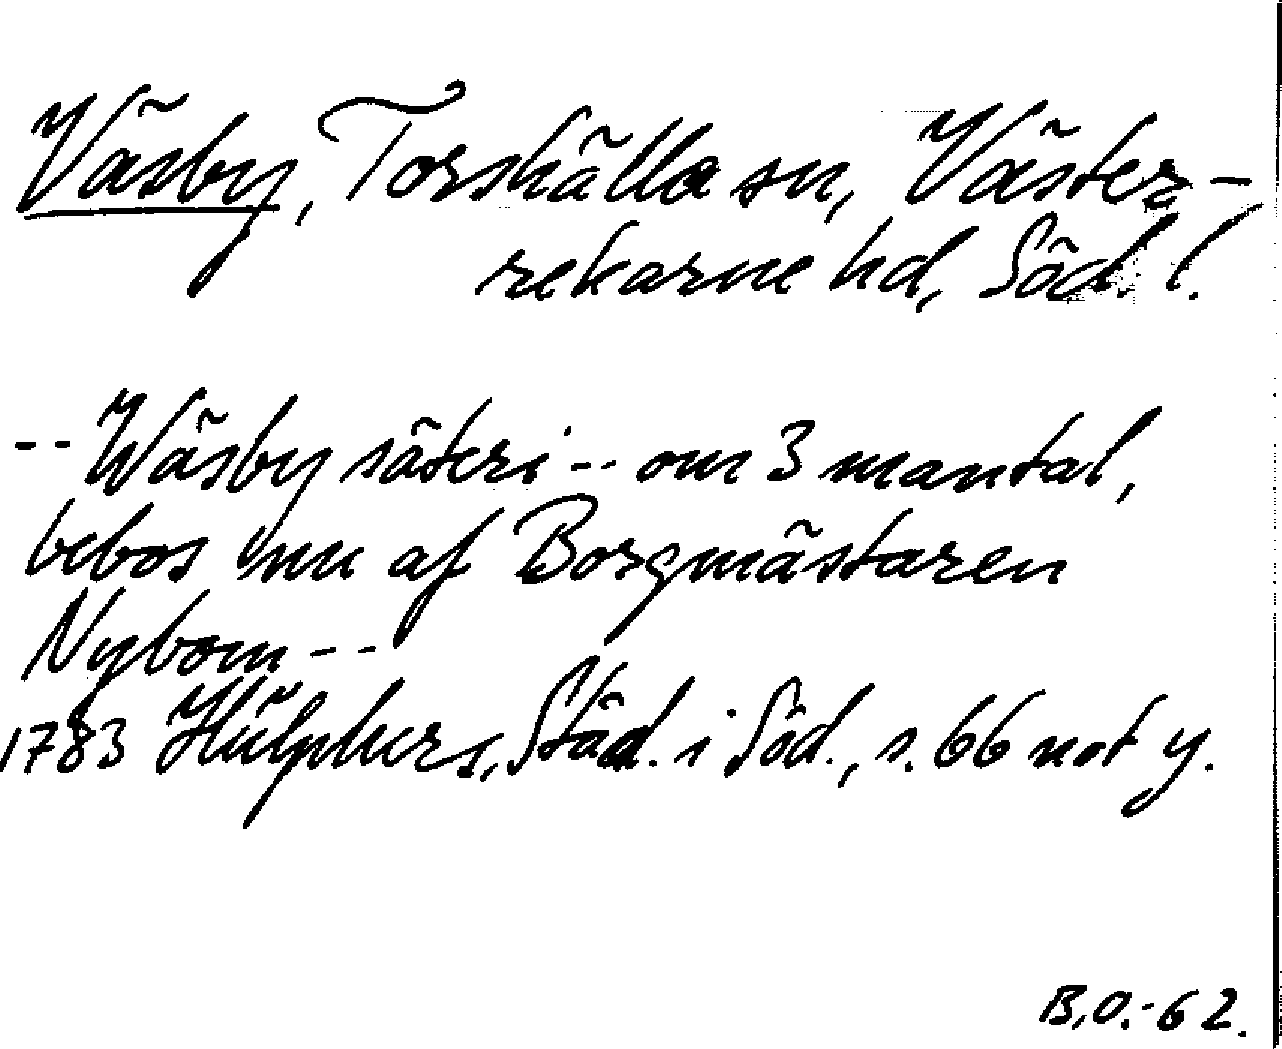 Väsby, Torshälla sn, Väster-
rekarne hd, Söd. l.
-- Wäsby säteri -- om 3 mantal,
bebos nu af Borgmästaren
Nybom --
1783 Hülphers, Städ. i Söd., s. 66 not y.
B.O.-62.